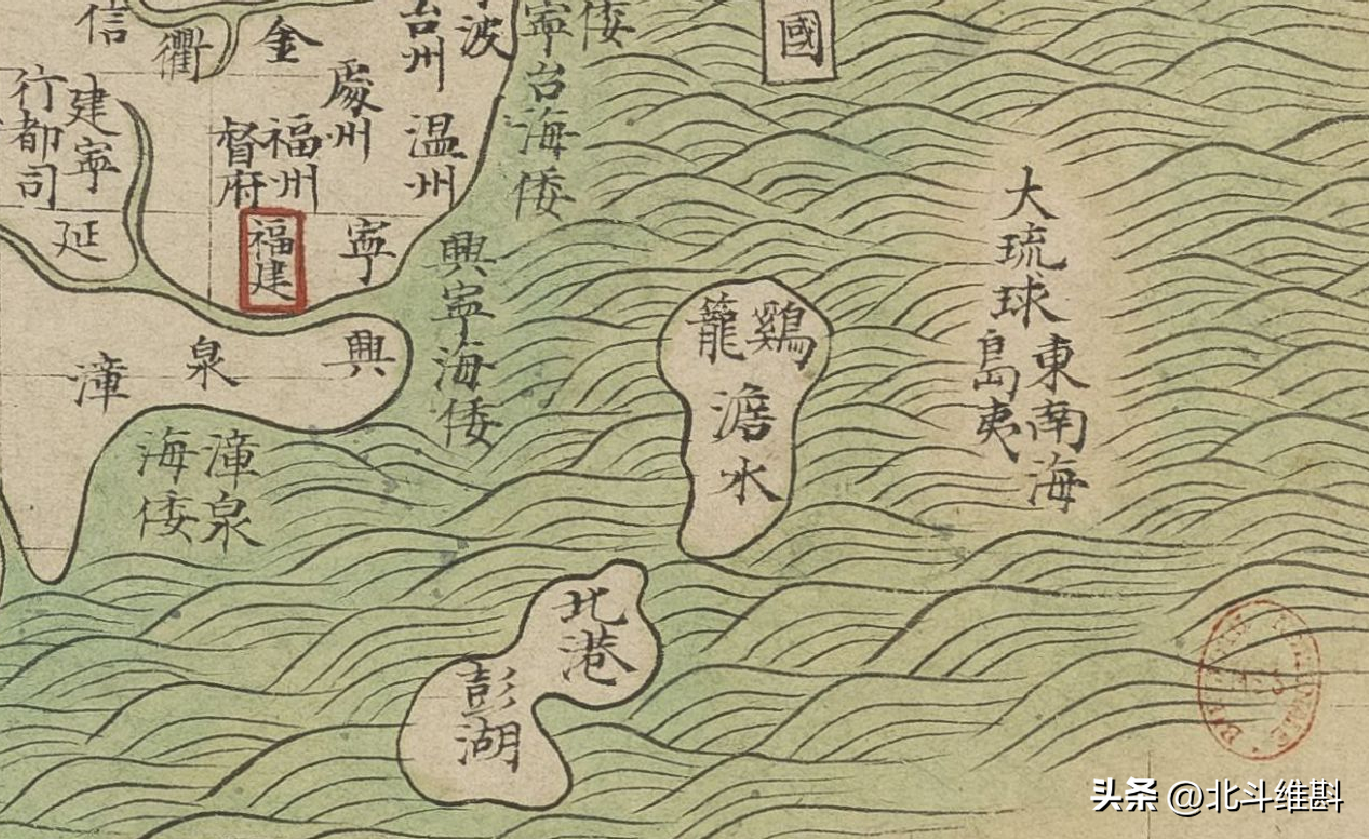 信
衢
金
台州
波
寧
倭
國
行都司
建寧
處州
督府
福州
溫州
台海倭
延
福建
寧
興寧海倭
大琉球
東南海
島夷
鷄
籠
澹水
漳
泉
興
漳泉
海倭
北港
彭湖
头条 @北斗维斟